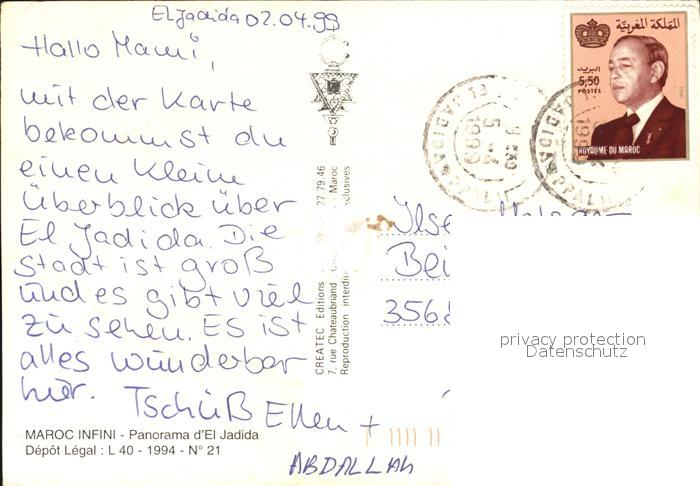 El Jadida 02.04.99
Hallo Mami,
mit der Karte
bekommst du
einen kleinen
Überblick über
El Jadida. Die
Stadt ist groß
und es gibt viel
zu sehen. Es ist
alles wunderbar
hier.
Tschüß Ellen +
ABDALLAH
MAROC INFINI - Panorama d'El Jadida
Dépôt Légal : L 40 - 1994 - N° 21
CREATEC Editions
7, rue Chateaubriand
Reproduction interdi
27 79.46
Maroc
xclusives
EL JADIDA
5-4
1999
EL JADIDA
المملكة المغربية
البريد
5,50
POSTES
ROYAUME DU MAROC
Ilse
Bei
3568
privacy protection
Datenschutz